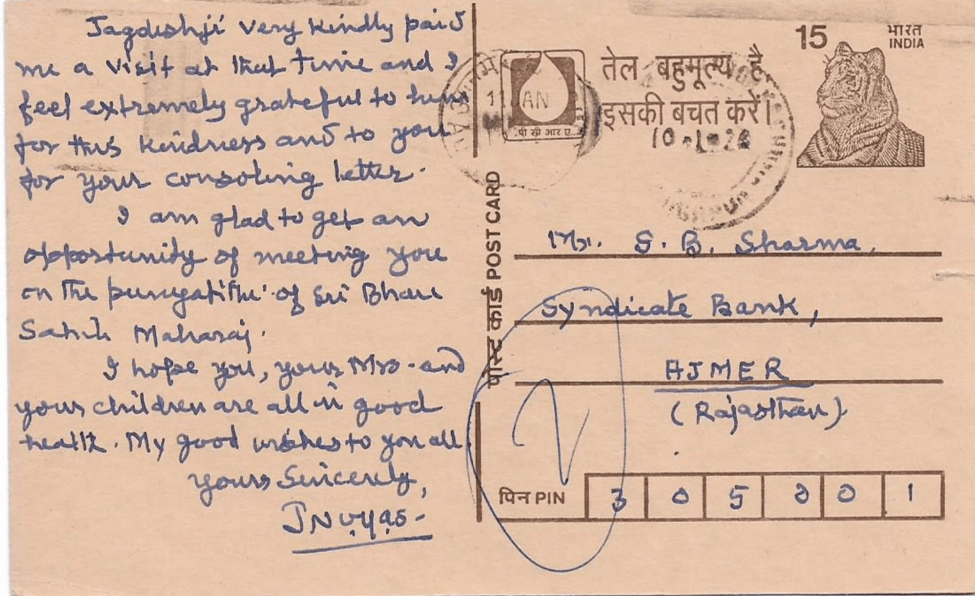 Jagdishji very kindly paid
me a visit at that time and I
feel extremely grateful to him
for this kindness and to you
for your consoling letter.
I am glad to get an
opportunity of meeting you
on the punyatithi of Sri Bhau
Sahib Maharaj.
I hope you, your Mrs. and
your children are all in good
health. My good wishes to you all.
Yours Sincerely,
JNVyas-
पोस्ट कार्ड POST CARD
11 JAN
पी सी आर ए
तेल बहुमूल्य है
इसकी बचत करें।
15
भारत
INDIA
Mr. S. B. Sharma,
Syndicate Bank,
AJMER
(Rajasthan)
पिन PIN 3 0 5 0 0 1